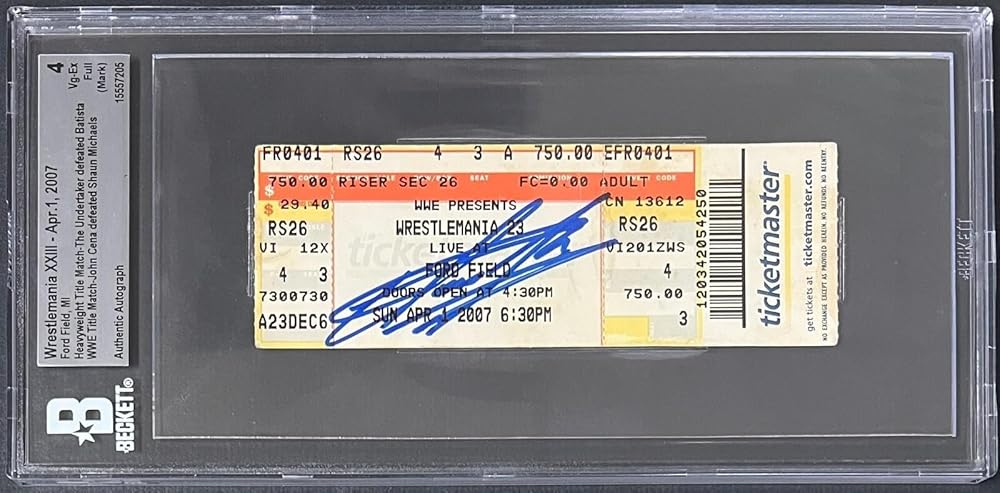 Wrestlemania XXIII - Apr.1, 2007
Ford Field, MI
Heavyweight Title Match-The Undertaker defeated Batista
WWE Title Match-John Cena defeated Shaun Michaels
Authentic Autograph
4
Vg-Ex
Full
(Mark)
15557205
BECKETT®
FR0401 RS26 4 3 A 750.00 EFR0401
SEAT
CODE
$ 750.00 RISER SEC 26 FC=0.00 ADULT
$ 29.40 WWE PRESENTS CN 13612
RS26 WRESTLEMANIA 23 RS26
VI 12X LIVE AT VI201ZWS
4 3 FORD FIELD 4
7300730 DOORS OPEN AT 4:30PM 750.00
A23DEC6 SUN APR 1 2007 6:30PM 3
120342054250
ticketmaster
get tickets at ticketmaster.com
NO EXCHANGE EXCEPT AS PROVIDED HEREIN. NO REFUNDS. NO REENTRY.